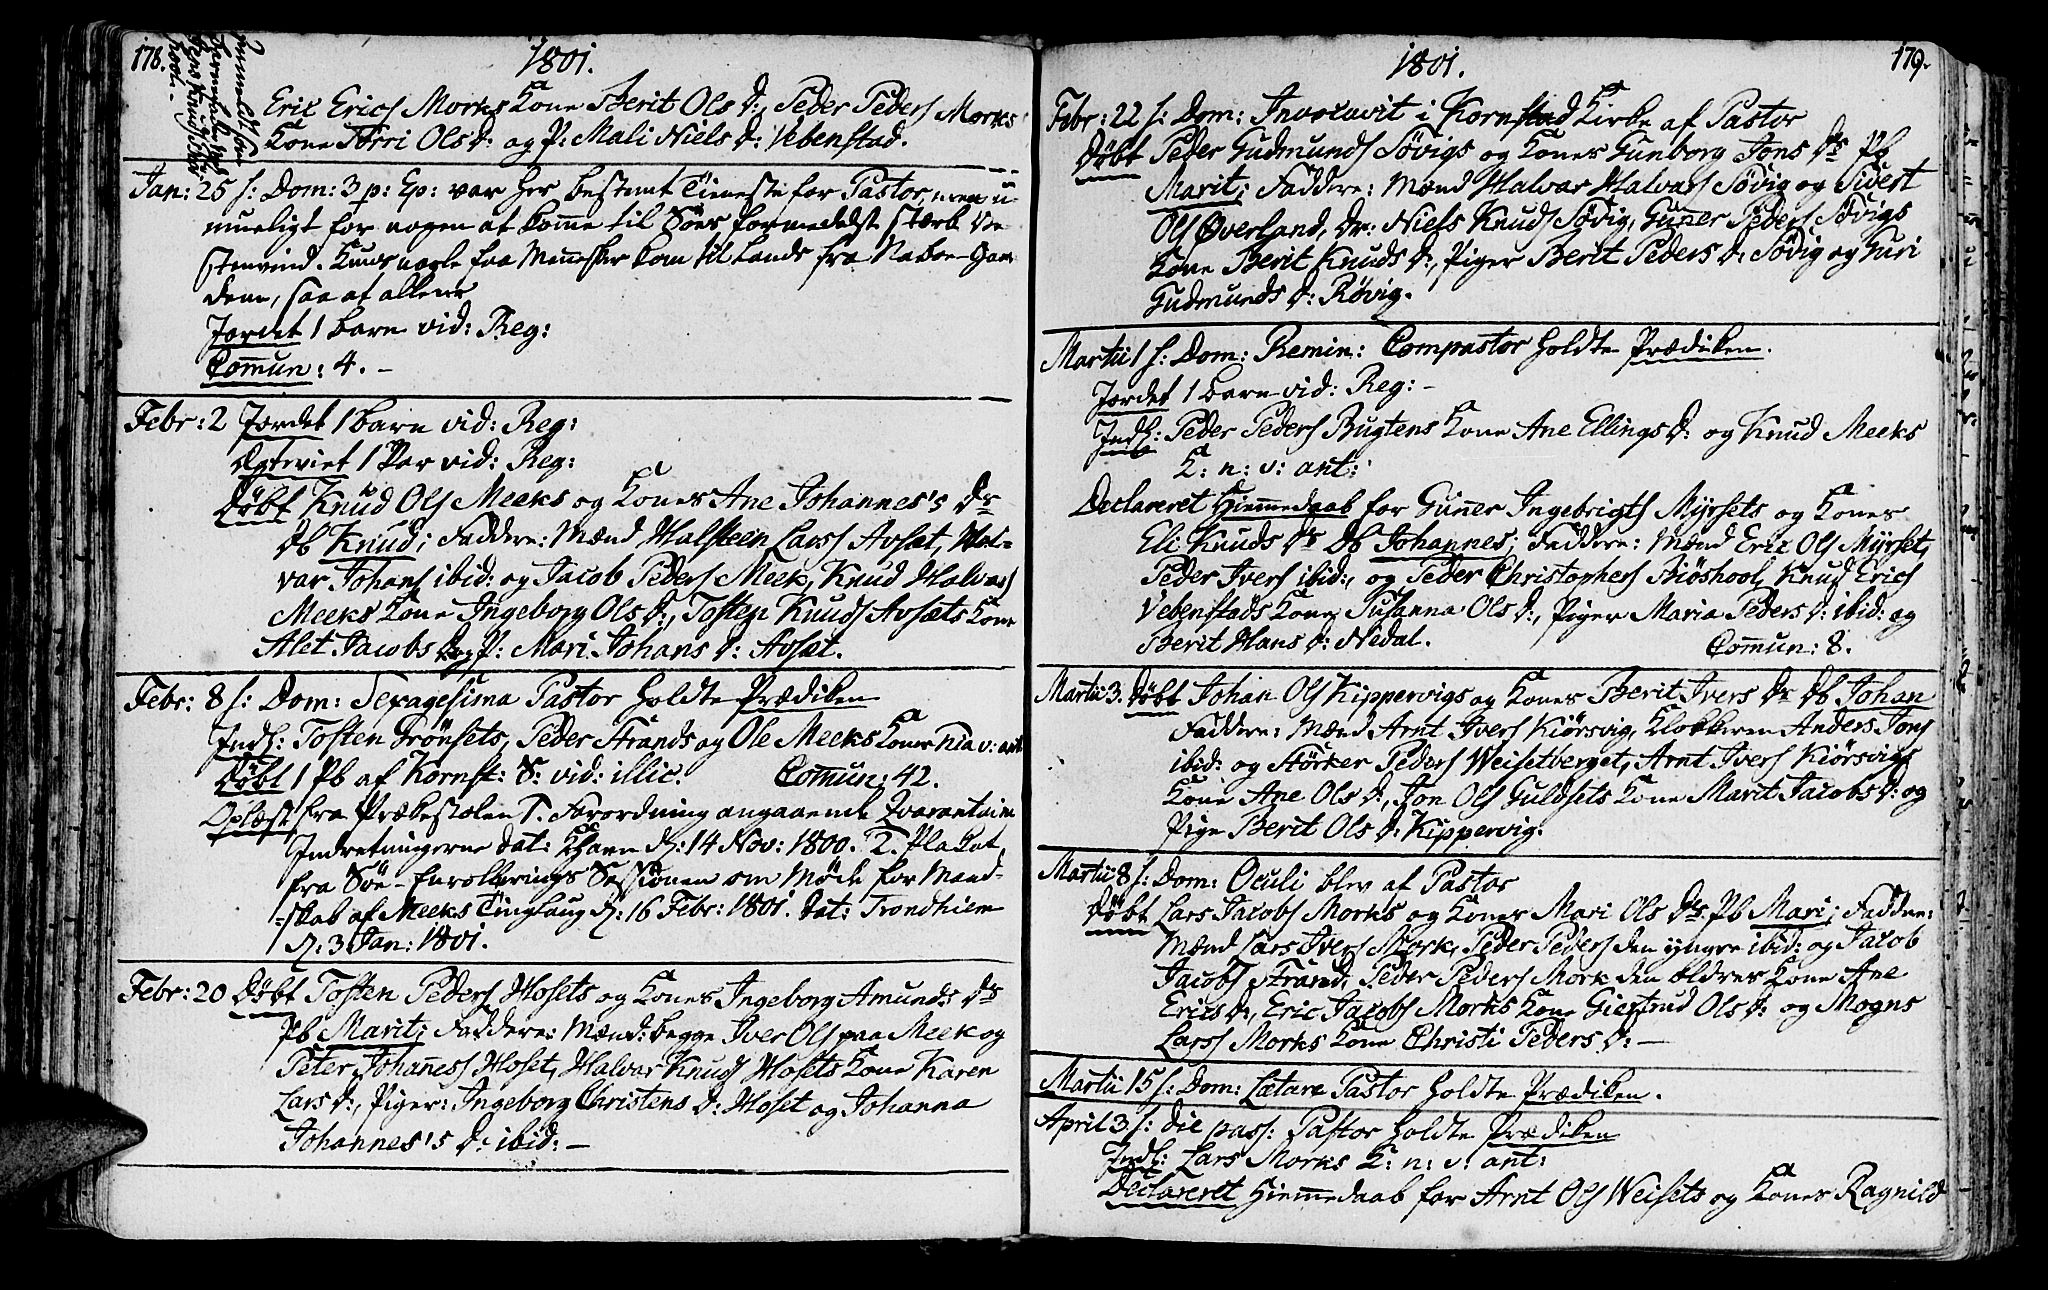 178.
1801.
Eric Erics Morks Kone Berit Ols D:, Peder Peders Morks
Kone Torri Ols D: og P: Mali Niels D: Vebenstad.
Jan: 25 s: Dom: 3 p: Ep: var her bestemt Tieneste for Pastor, men u-
mueligt for nogen at komme til Søes formedelst stærk Ve
stenvind. Kuns nogle faa Mennesker kom til Lands fra Naboe-Gaar
dene, saa at allene
Jordet 1 barn vid: Reg:
Comun: 4. -
Febr: 2 Jordet 1 barn vid: Reg:
Egteviet 1 Par vid: Reg:
Døbt Knud Ols Meeks og Kones Ane Johannes's Dr
Db Knud; Faddere: Mænd Halsteen Lars Avsæt, Hal-
var Johans ibid: og Jacob Peders Meek, Knud Halvars
Meeks Kone Ingeborg Ols D:, Tosten Knuds Avsæts Kone
Alet Jacobs D og P: Mari Johans D: Avsæt.
Febr: 8 s: Dom: Sexagesima Pastor holdte Prædiken
Indl: Tosten Trønsets, Peder Strands og Ole Meeks Koner
Døbt 1 Pb af Kornst: S: vid: illic. Comun: 42.
Oplæst fra Prækestolen 1. Forordning angaaende Qvarantaine
Indretningerne dat: KHavn d: 14 Nov: 1800. 2. Plakat
fra Søe-Enrollerings Sessionen om Møde for Mand-
skab af Meeks Tinglaug d: 16 Febr: 1801. dat: Trondhiem
d: 3 Jan: 1801.
Febr: 20 Døbt Tosten Peders Hosets og Kones Ingeborg Amunds Dr
Pb Marit; Faddere: Mænd: begge Iver Ols paa Meek og
Peter Johanes Hoset, Halvar Knuds Hosets Kone Karen
Lars D:, Piger: Ingeborg Christens D: Hoset og Johanna
Johannes's D: ibid: -
179.
1801.
Febr: 22 s: Dom: Invocavit i Kornstad Kirke af Pastor
Døbt Peder Gudmunds Søvigs og Kones Gunborg Jons Dr Pb
Marit; Faddere: Mænd Halvar Halvars Søvig og Sivert
Ols Øverland, Dr: Niels Knuds Søvig, Guner Peders Søvigs
Kone Berit Knuds D:, Piger Berit Peders D: Søvig og Guri
Gudmunds D: Røvig.
Martii 1 s: Dom: Remin: Compastor holdte Prædiken.
Jordet 1 barn vid: Reg: -
Indl: Peder Peders Bugtens Kone Ane Ellings D: og Knud Meeks
K: n: v: ant:
Declareret Hiemedaab for Guner Ingebrigts Myrsets og Kones
Eli Knuds Dr Db Johannes; Faddere: Mænd Eric Ols Myrset,
Peder Ivers ibid:, og Peder Christophers Stöshool, Knud Erics
Vebenstads Kone Susanna Ols D:, Piger Maria Peders D: ibid: og
Berit Hans D: Nedal. Comun: 8.
Martii 3. Døbt Johan Ols Kippervigs og Kones Berit Ivers Dr Db Johan
Faddere: Mænd Arnt Ivers Kiörsvig, Klokkeren Anders Jons
ibid: og Störker Peders Weisetberget, Arnt Ivers Kiörsvigs
Kone Ane Ols D:, Jon Ols Guldsets Kone Marit Jacobs D: og
Pige Berit Ols D: Kippervig:
Martii 8 s: Dom: Oculi blev af Pastor
Døbt Lars Jacobs Morks og Kones Mari Ols Dr. Pb Mari; Faddere:
Mænd Lars Ivers Mork, Peder Peders den yngre ibid: og Jacob
Jacobs Strand, Peder Peders Mork den ældres Kone Ane
Erics D:, Eric Jacobs Morks Kone Giertrud Ols D: og Mogns
Lars Morks Kone Christi Peders D: -
Martii 15 s: Dom: Lætare Pastor holdte Prædiken.
April 3 s: die pass: Pastor holdte Prædiken
Indl: Lars Morks K: n: v: ant:
Declareret Hiemedaab for Arnt Ols Weisets og Kones Ragnild